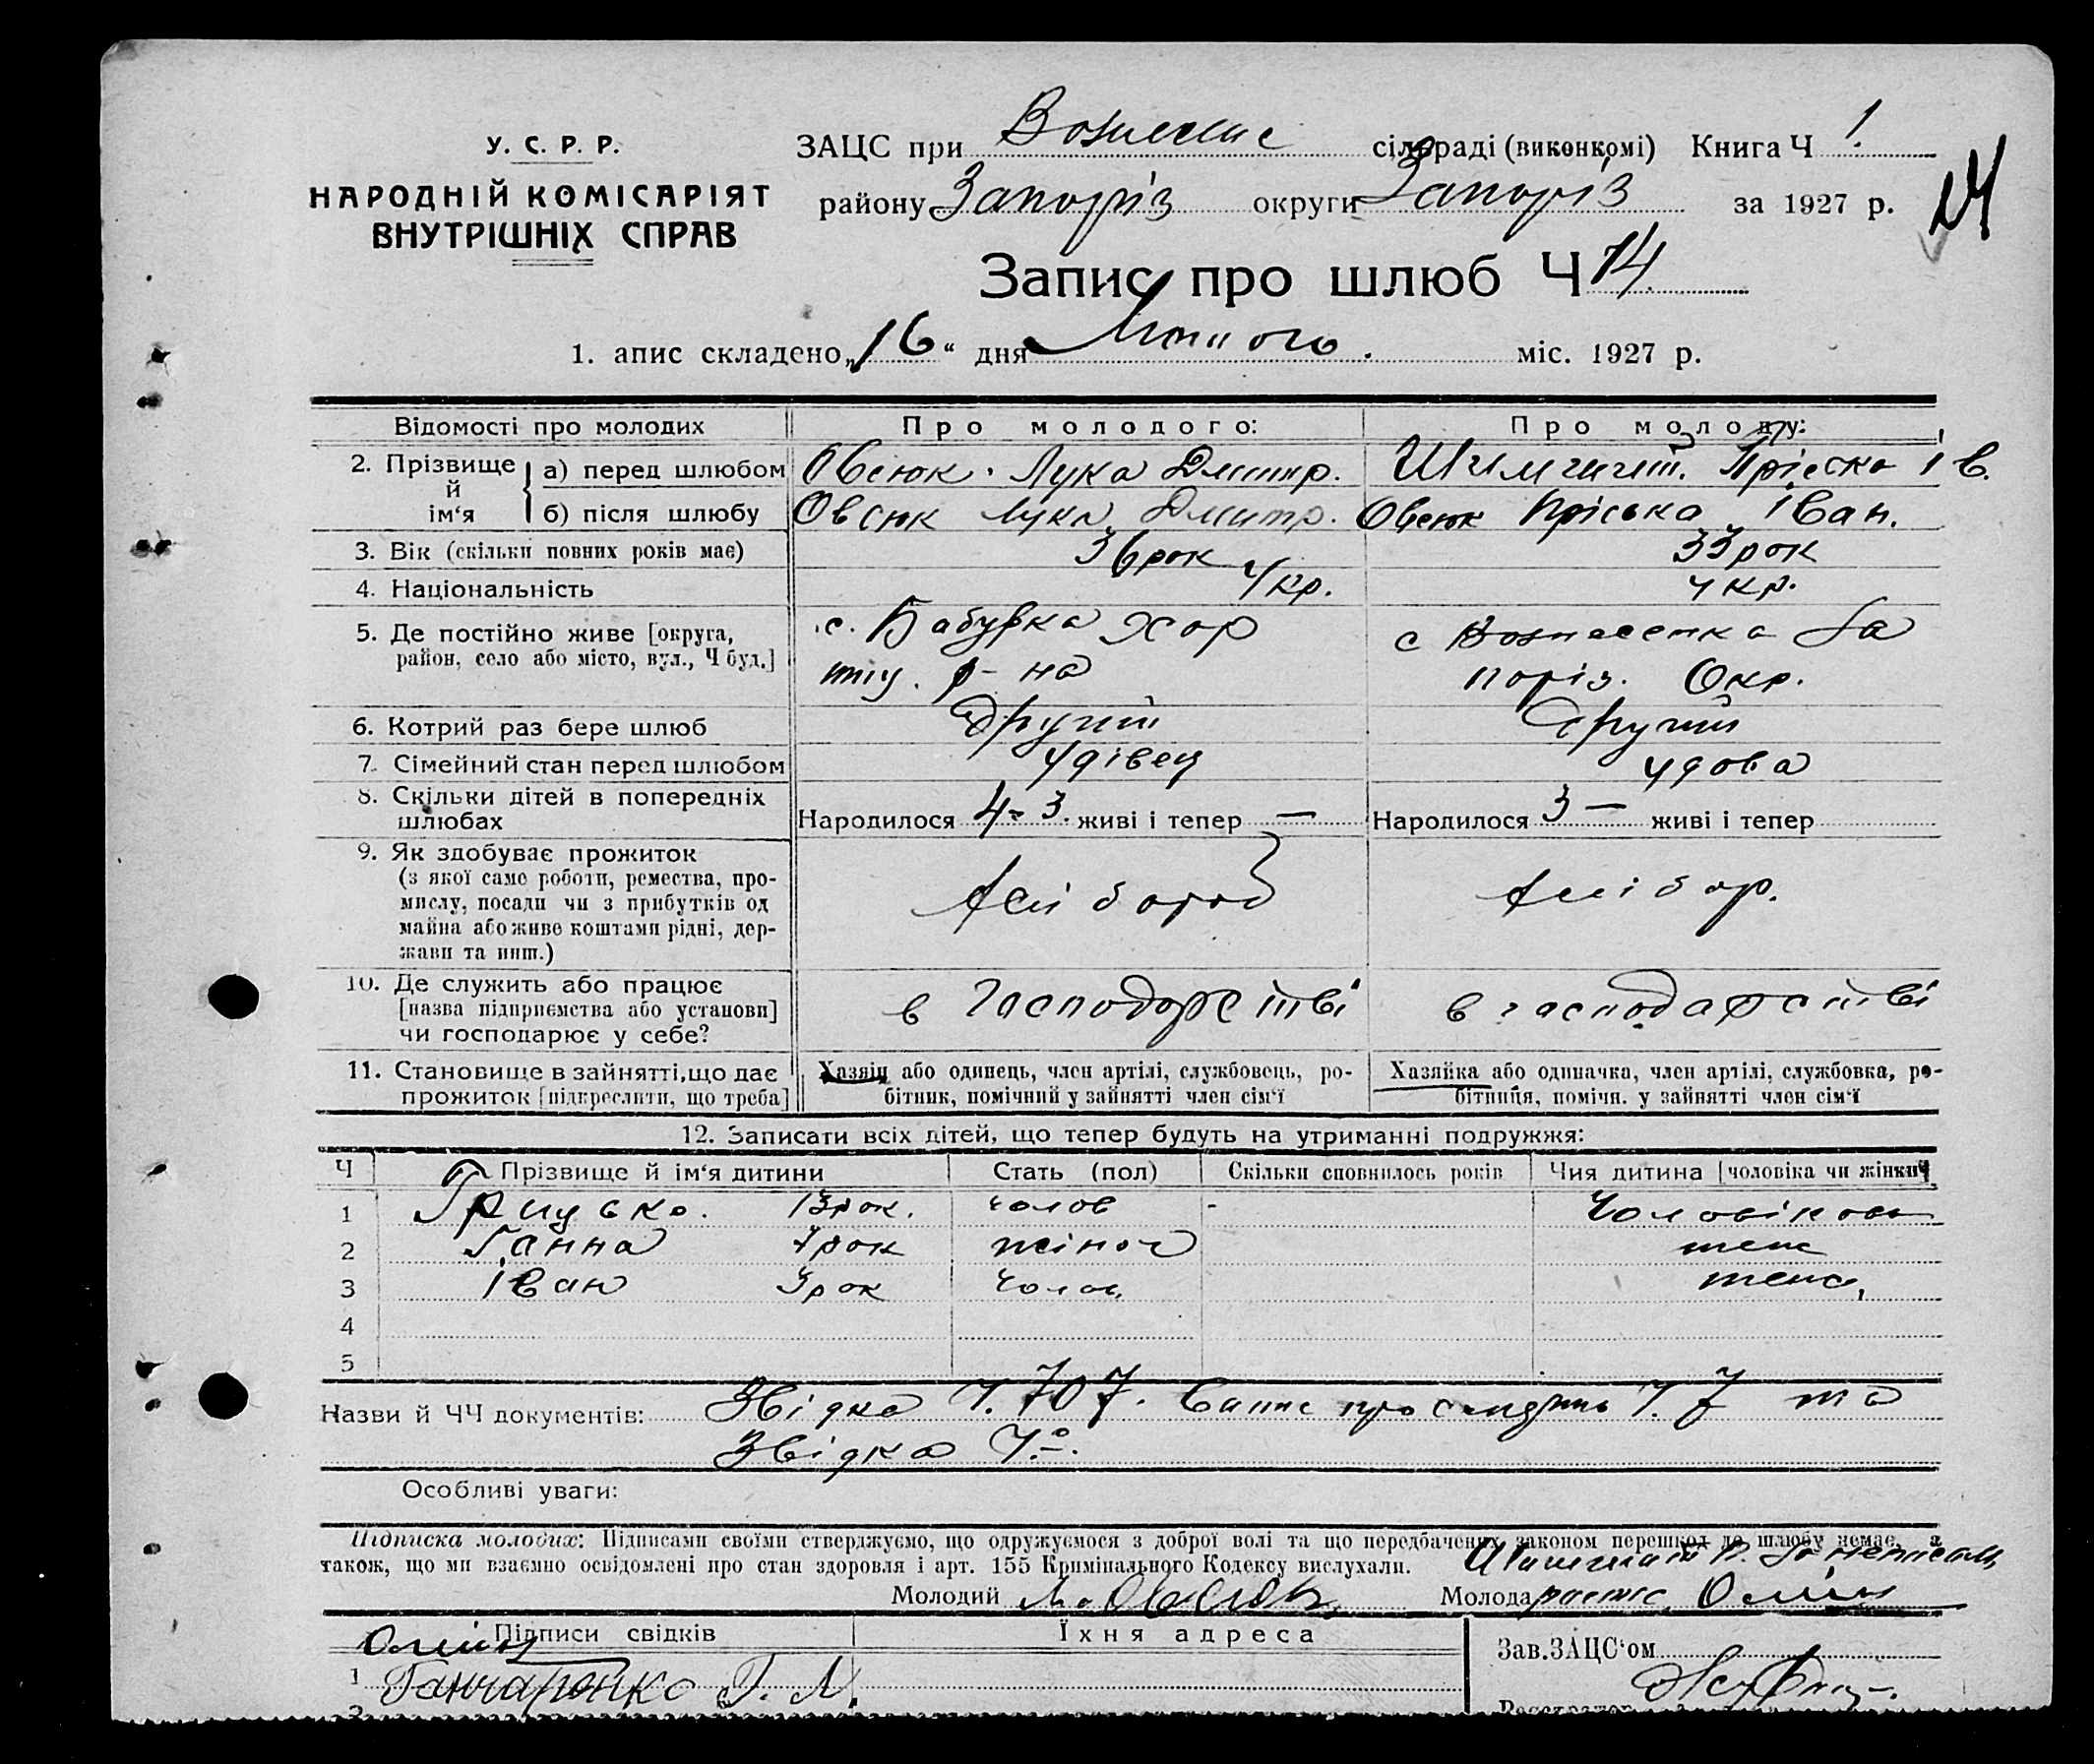 У. С. Р. Р.
НАРОДНІЙ КОМІСАРІЯТ
ВНУТРІШНІХ СПРАВ
ЗАЦС при Вознесенс сільраді (виконкомі) Книга Ч 1.
району Запоріз округи Запоріз за 1927 р.
14
Запис про шлюб Ч 14.
1. апис складено „16“ дня Лютого. міс. 1927 р.
Відомості про молодих Про молодого: Про молоду:
2. Прізвище й ім‘я
а) перед шлюбом Овсюк Лука Дмитр. Пріська Ів.
б) після шлюбу Овсюк Лука Дмитр. Овсюк Пріська Іван.
3. Вік (скільки повних років має) 36 рок 33 рок
4. Національність Укр. Укр.
5. Де постійно живе [округа, район, село або місто, вул., Ч буд.]
с. Бабурка Хор
тиц. р-на
с Вознесенка За
поріз. Окр.
6. Котрий раз бере шлюб Другий Другий
7. Сімейний стан перед шлюбом Удівец удова
8. Скільки дітей в попередніх шлюбах Народилося 4 - 3. живі і тепер — Народилося 3 — живі і тепер
9. Як здобуває прожиток
(з якої саме роботи, ремества, про-
мислу, посади чи з прибутків од
майна або живе коштами рідні, дер-
жави та инш.)
Хлібороб Хлібор.
10. Де служить або працює
[назва підприємства або установи]
чи господарює у себе?
в господорстві в господарстві
11. Становище в зайнятті, що дає
прожиток [підкреслити, що треба]
Хазяїн або одинець, член артілі, службовець, ро-
бітник, помічний у зайнятті член сім‘ї
Хазяйка або одиначка, член артілі, службовка, ро-
бітниця, помічн. у зайнятті член сім‘ї
12. Записати всіх дітей, що тепер будуть на утриманні подружжя:
Ч Прізвище й ім‘я дитини Стать (пол) Скільки сповнилось років Чия дитина [чоловіка чи жінки]
1 Грицько. 13 рок. чолов Чоловікова
2 Ганна 7 рок жіноч теж
3 Іван 3 рок чолов.
4
5
Назви й ЧЧ документів: Звідка Ч. 707. про Ч. 7 та
Звідка Ч.
Особливі уваги:
Підписка молодих: Підписами своїми стверджуємо, що одружуємося з доброї волі та що передбачених законом перешкод до шлюбу немає, а
також, що ми взаємно освідомлені про стан здоровля і арт. 155 Кримінального Кодексу вислухали.
Молодий Л. Овсюк Молода
Підписи свідків Їхня адреса
Зав. ЗАЦС‘ом
1 Ганчаренко Г. М.
2
Реєстратор